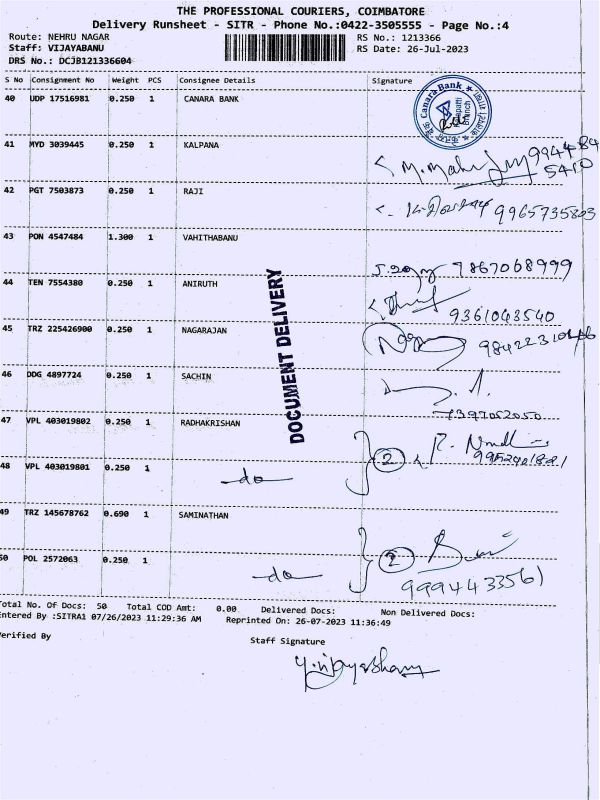 THE PROFESSIONAL COURIERS, COIMBATORE
Delivery Runsheet - SITR - Phone No.:0422-3505555 - Page No.:4
Route: NEHRU NAGAR RS No.: 1213366
Staff: VIJAYABANU RS Date: 26-Jul-2023
DRS No.: DCJB121336604
S No Consignment No Weight PCS Consignee Details Signature
40 UDP 17516981 0.250 1 CANARA BANK
Canara Bank
Branch
41 MYD 3039445 0.250 1 KALPANA
994484
5410
42 PGT 7503873 0.250 1 RAJI
9965735803
43 PON 4547484 1.300 1 VAHITHABANU
7867068999
44 TEN 7554380 0.250 1 ANIRUTH
9361043540
45 TRZ 225426900 0.250 1 NAGARAJAN
46 DDG 4897724 0.250 1 SACHIN
7397052050
47 VPL 403019802 0.250 1 RADHAKRISHAN
2
48 VPL 403019801 0.250 1 -do-
49 TRZ 145678762 0.690 1 SAMINATHAN
2
50 POL 2572063 0.250 1 -do-
9994433561
DOCUMENT DELIVERY
Total No. Of Docs: 50 Total COD Amt: 0.00 Delivered Docs: Non Delivered Docs:
Entered By :SITRA1 07/26/2023 11:29:36 AM Reprinted On: 26-07-2023 11:36:49
Verified By Staff Signature